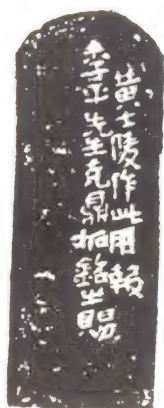 黄士陵作此用報
季平先生克鼎拓銘之賜